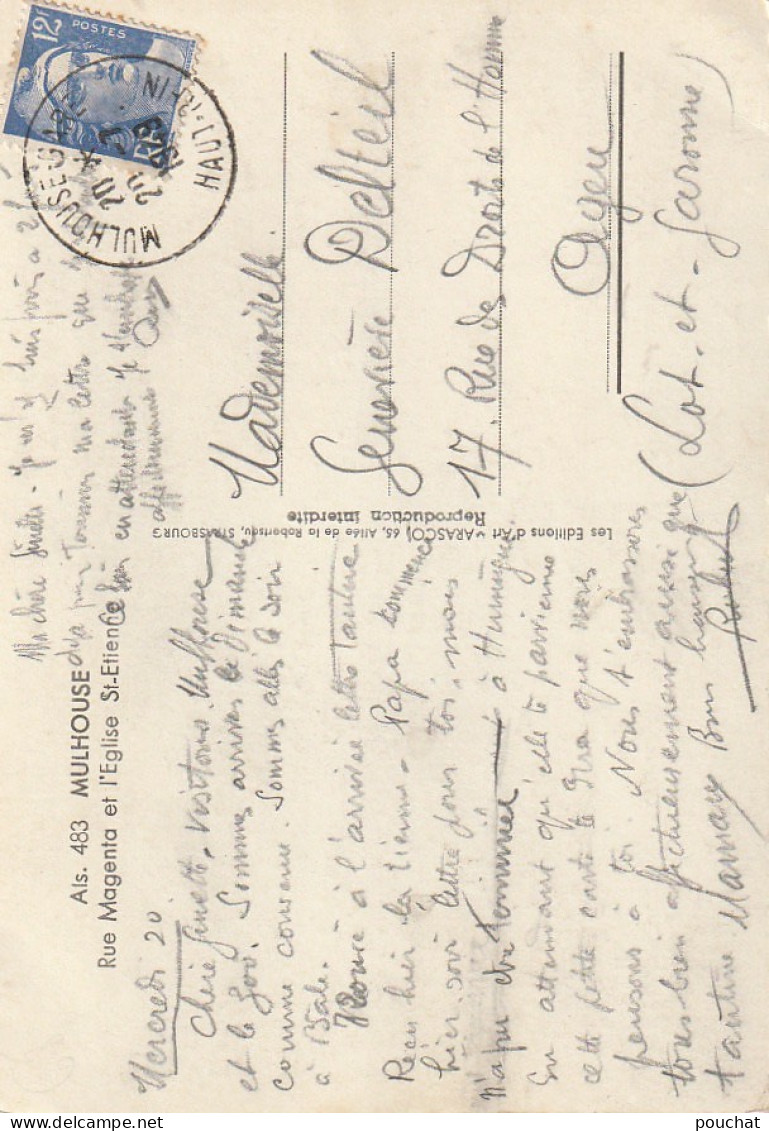 Als. 483 MULHOUSE
Rue Magenta et l'Eglise St-Etienne
Mercredi 20
Chère Ginette, visitons Mulhouse
et le Zoo. Sommes arrivés le Dimanche
comme convenu. Sommes allés le soir
à Bâle.
à l'arrivée lettre tantine
Reçu hier la tienne - Papa commence
hier soir lettre pour toi, mais
n'a pu être terminée à Huningue.
En attendant qu'elle te parvienne
cette petite carte te dira que nous
pensons à toi. Nous t'embrassons
tous bien affectueusement ainsi que
tantine Mamary Bons baisers
Robert
Ma chère Ginette - Je
pour terminer ma lettre que
en attendant je t'embrasse
affectueusement
Les Editions d'Art "YARASCO", 65, Allée de la Robertsau, STRASBOURG
Reproduction interdite
Mademoiselle
Geneviève Delteil
17. Rue des Droits de l'Homme
Agen
(Lot-et-Garonne)
12F
POSTES
MULHOUSE-GARE
HAUT-RHIN
pouchat